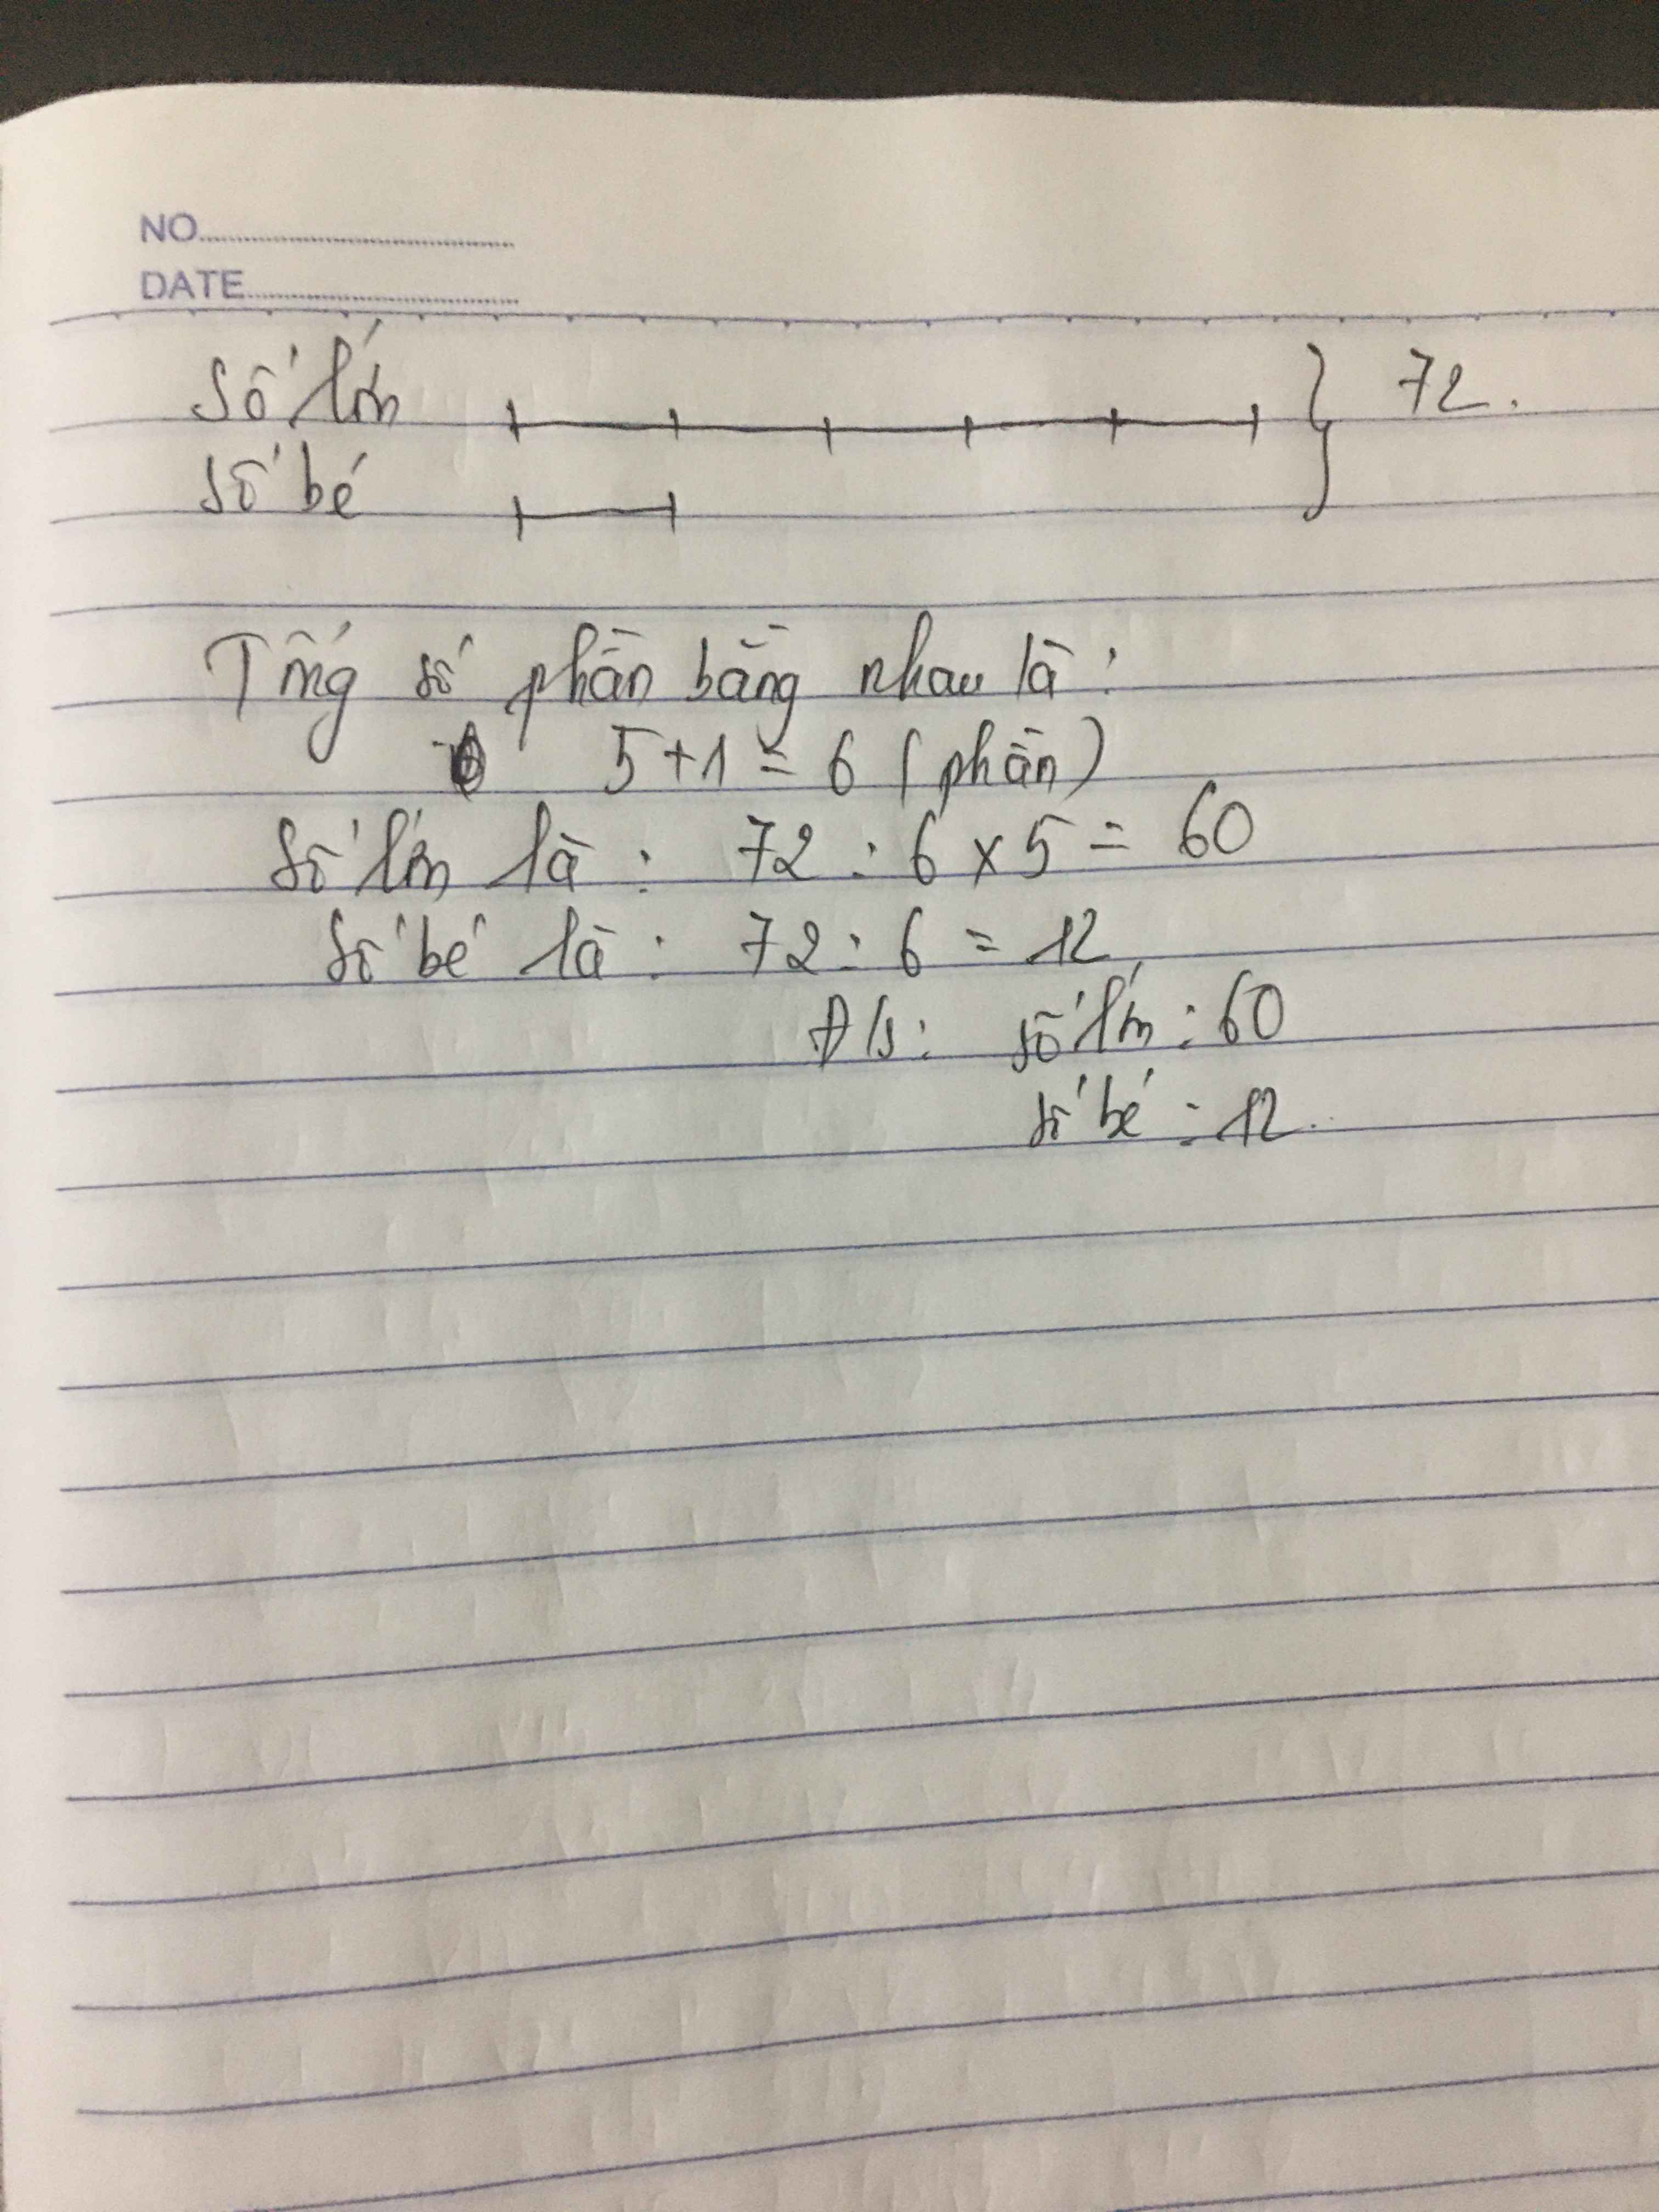 NO
DATE
Số lớn } 72.
Số bé
Tổng số phần bằng nhau là:
5+1 = 6 (phần)
Số lớn là : 72 : 6 x 5 = 60
Số bé là : 72 : 6 = 12
Đ/S: Số lớn : 60
Số bé : 12.